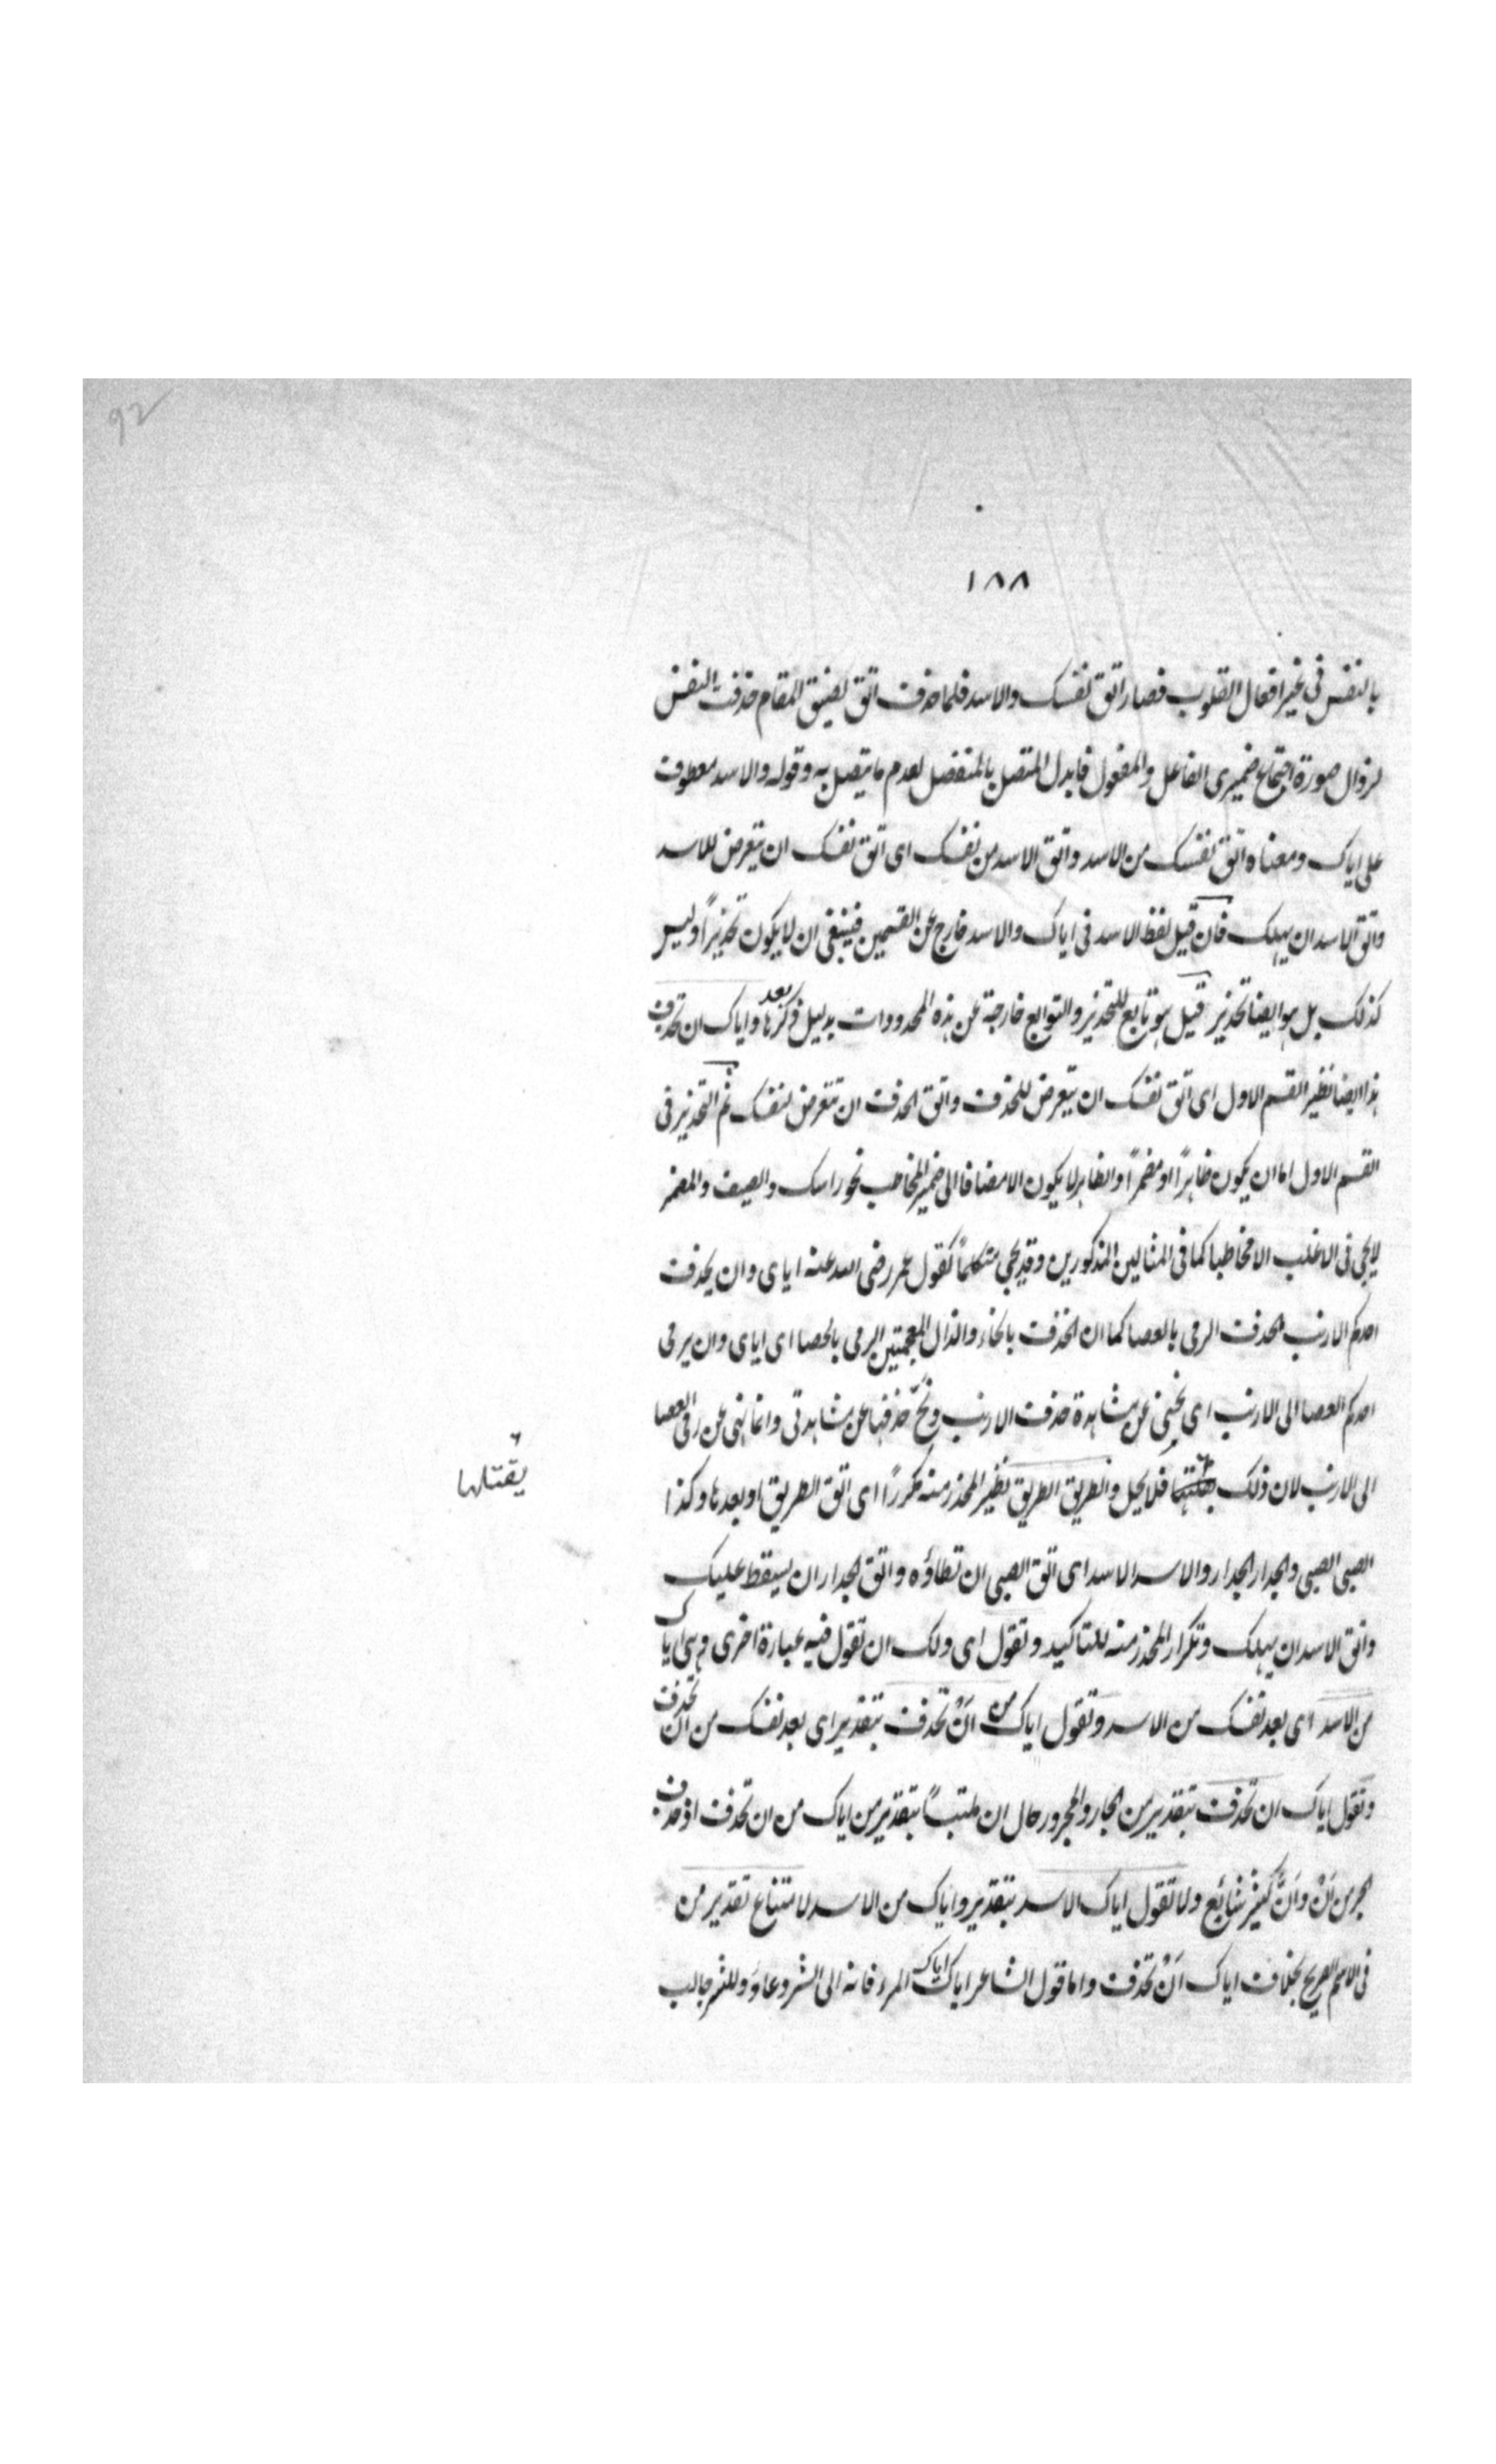 92
١٨٨
بالنفس فى غير افعال القلوب فصار اتق نفسك والاسد فلما حذف اتق لضيق المقام حذفت النفس
لزوال صورة اجتماع ضميرى الفاعل والمفعول فابدل المتصل بالمنفصل لعدم ما يتصل به وقوله والاسد معطوف
على اياك ومعناه اتق نفسك من الاسد واتق الاسد من نفسك اى اتق نفسك ان يتعرض للاسد
واتق الاسد ان يهلك فان قيل لفظ الاسد فى اياك والاسد خارج عن القسمين فينبغى ان لا يكون تحذيراً وليس
كذلك بل هو ايضا تحذير قيل هو تابع للتحذير والتوابع خارجة عن هذه المحدودات بدليل ذكرها بعد واياك ان تحذف
هذا ايضا نظير القسم الاول اى اتق نفسك ان يتعرض للحذف واتق الحذف ان تتعرض لنفسك ثم التحذير فى
القسم الاول اما ان يكون ظاهراً او مضمراً والظاهر لا يكون الا مضافا الى ضمير المخاطب نحو راسك والسيف والمضمر
لا يجى فى الاغلب الا مخاطبا كما فى المثالين المذكورين وقد يجى متكلماً كقول عمر رضى الله عنه اياى وان يحذف
احدكم الارنب الحذف الرمى بالعصا كما ان الخذف بالخاء والذال المعجمتين الرمى بالحصا اى اياى وان يرمى
احدكم العصا الى الارنب اى نحنى عن مشاهدة حذف الارنب ونحّ حذفها عن مشاهدتى وانما نهى عن رمى العصا
الى الارنب لان ذلك فلا يحل والطريق الطريق نظير المحذر منه مكرراً اى اتق الطريق او بعدها وكذا
يقتلها
الصبى الصبى والجدار الجدار والاسد الاسد اى اتق الصبى ان تطاؤه واتق الجدار ان يسقط عليك
واتق الاسد ان يهلك وتكرار المحذر منه للتاكيد وتقول اى ولك ان تقول فيه عبارة اخرى وهى اياك
من الاسد اى بعد نفسك من الاسد وتقول اياك من انْ تحذف بتقدير اى بعد نفسك من ان تحذف
وتقول اياك ان تحذف بتقدير من الجار والمجرور حال ان ملتبساً بتقدير من اياك من ان تحذف اذ حذف
الجر من اَنْ واَنَّ كثير شائع ولا تقول اياك الاسد بتقدير واياك من الاسد لامتناع تقدير من
فى الاسم الصريح بخلاف اياك اَنْ تحذف واما قول الشاعر اياك اياك المرء فانه الى الشر دعاؤ وللشر جالب